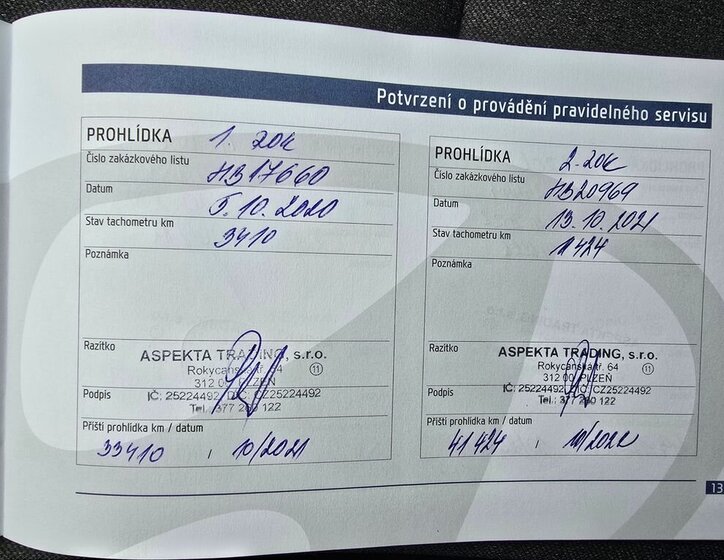 Potvrzení o provádění pravidelného servisu
PROHLÍDKA 1. rok
Číslo zakázkového listu HB17660
Datum 5.10.2020
Stav tachometru km 3410
Poznámka
Razítko
ASPEKTA TRADING, s.r.o.
Rokycanská tř. 64
312 00 PLZEŇ
11
IČ: 25224492, DIČ: CZ25224492
Tel.: 377 260 122
Podpis
Příští prohlídka km / datum
33410 / 10/2021
PROHLÍDKA 2. rok
Číslo zakázkového listu HB20969
Datum 13.10.2021
Stav tachometru km 11424
Poznámka
Razítko
ASPEKTA TRADING, s.r.o.
Rokycanská tř. 64
312 00 PLZEŇ
11
IČ: 25224492, DIČ: CZ25224492
Tel.: 377 260 122
Podpis
Příští prohlídka km / datum
41424 / 10/2022
13